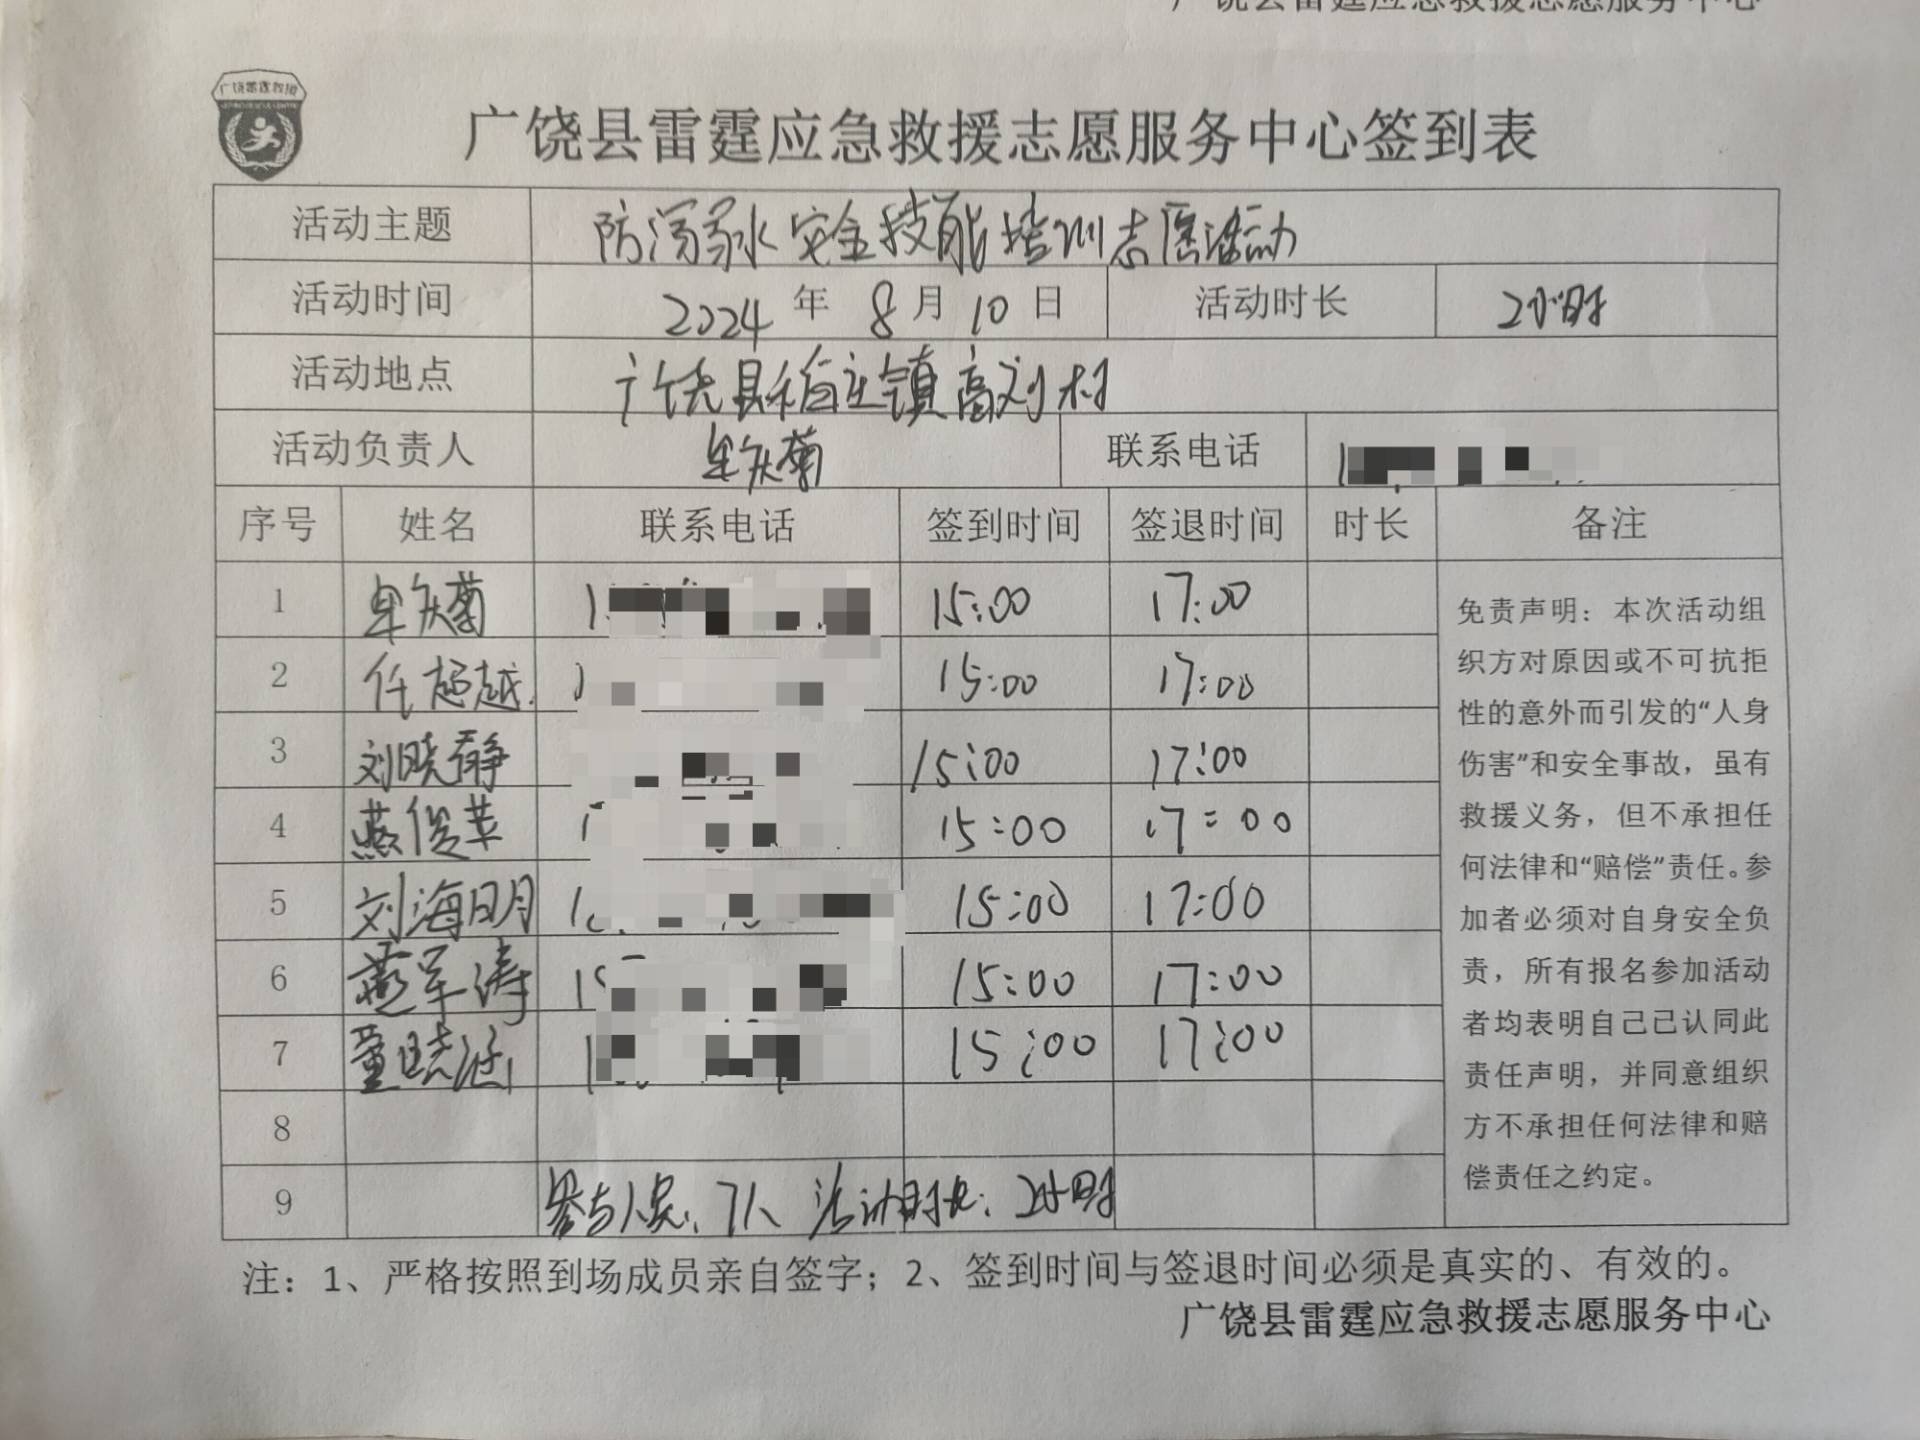 广饶县雷霆应急救援志愿服务中心
广饶雷霆救援
广饶县雷霆应急救援志愿服务中心签到表
活动主题 防溺水安全技能培训志愿活动
活动时间 2024 年 8 月 10 日 活动时长 2小时
活动地点 广饶县稻庄镇高刘村
活动负责人 联系电话 1
序号 姓名 联系电话 签到时间 签退时间 时长 备注
1 1 15:00 17:00
2 任超越 15:00 17:00
3 刘晓静 15:00 17:00
4 燕俊苹 15:00 17:00
5 刘海明 1 15:00 17:00
6 燕军涛 15:00 17:00
7 董晓涵 1 15:00 17:00
8
9 参与人员:7人 活动时长:2小时
免责声明：本次活动组
织方对原因或不可抗拒
性的意外而引发的“人身
伤害”和安全事故，虽有
救援义务，但不承担任
何法律和“赔偿”责任。参
加者必须对自身安全负
责，所有报名参加活动
者均表明自己已认同此
责任声明，并同意组织
方不承担任何法律和赔
偿责任之约定。
注：1、严格按照到场成员亲自签字；2、签到时间与签退时间必须是真实的、有效的。
广饶县雷霆应急救援志愿服务中心